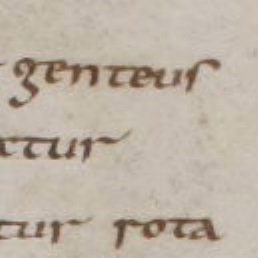 genteus
ctur
tur rota